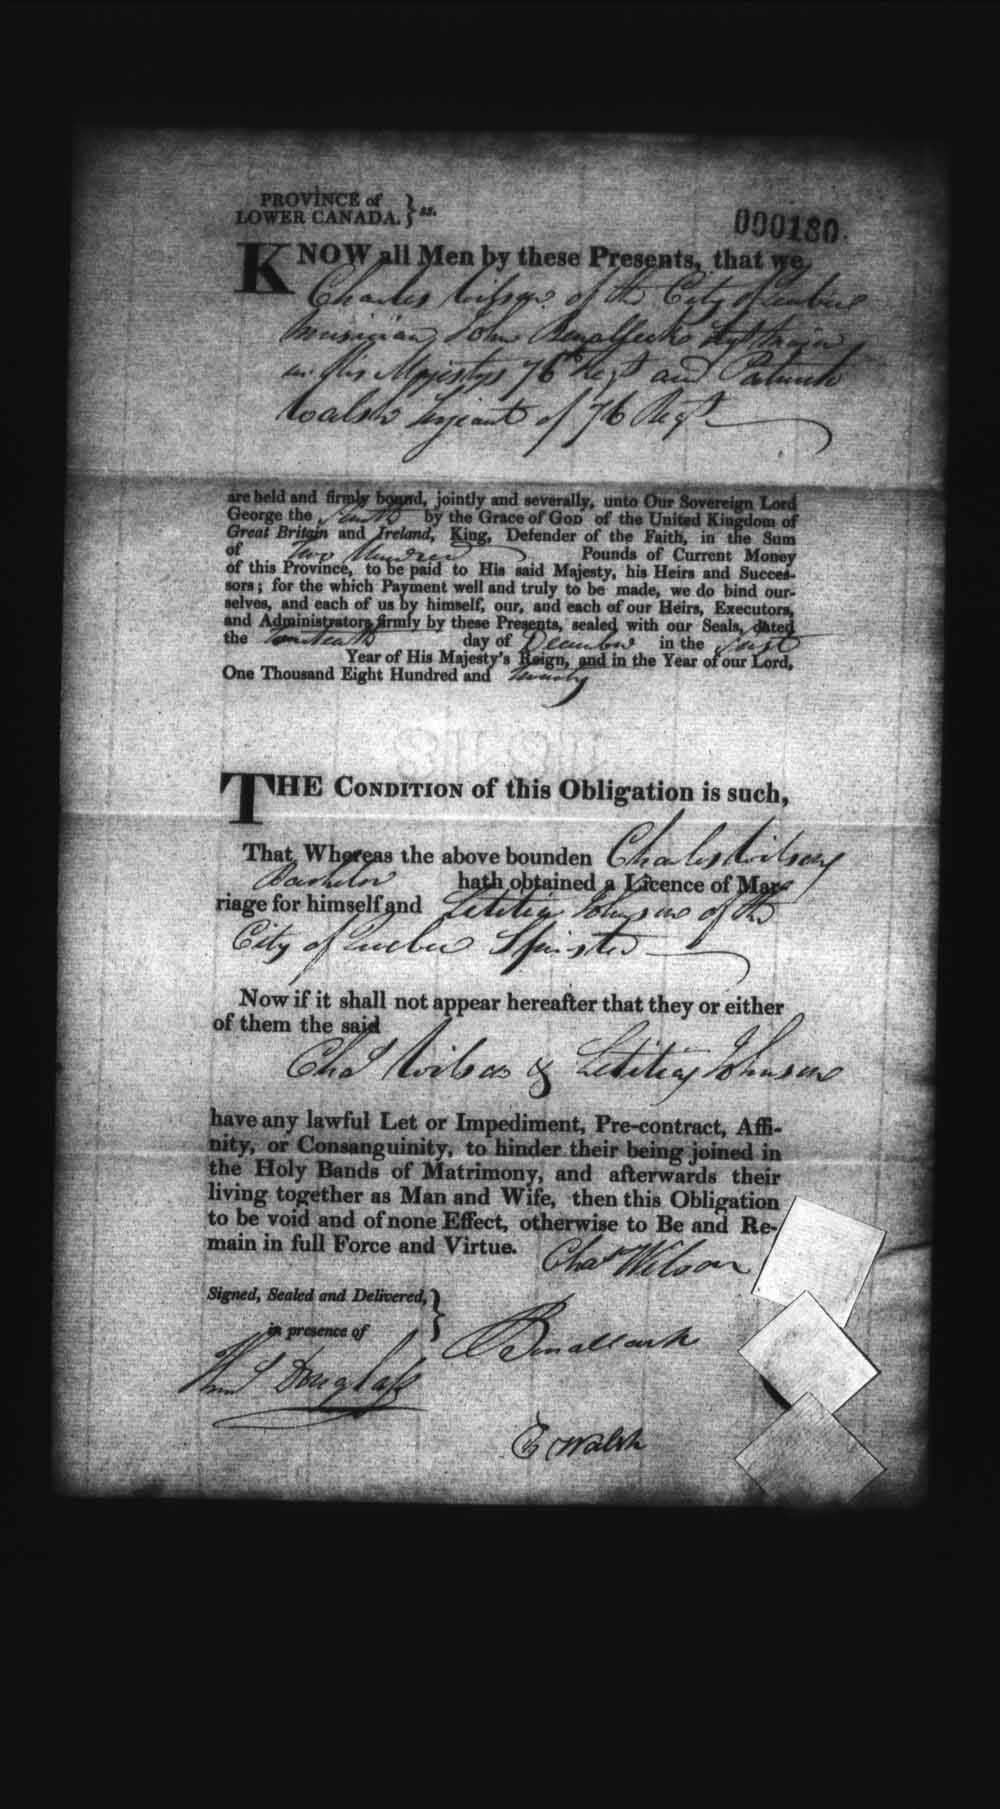 PROVINCE of
LOWER CANADA. } ss.
000180
KNOW all Men by these Presents, that we
Charles Wilson of the City of Quebec
Musician, John Serjt Major
in His Majestys 76th Regt and Patrick
Walsh Serjeant of 76 Regt
are held and firmly bound, jointly and severally, unto Our Sovereign Lord
George the Fourth by the Grace of GOD of the United Kingdom of
Great Britain and Ireland, King, Defender of the Faith, in the Sum
of Two Hundred Pounds of Current Money
of this Province, to be paid to His said Majesty, his Heirs and Succes-
sors; for the which Payment well and truly to be made, we do bind our-
selves, and each of us by himself, our, and each of our Heirs, Executors,
and Administrators firmly by these Presents, sealed with our Seals, dated
the day of December in the first
Year of His Majesty's Reign, and in the Year of our Lord,
One Thousand Eight Hundred and Twenty
THE CONDITION of this Obligation is such,
That, Whereas the above bounden Charles Wilson
Bachelor hath obtained a Licence of Mar-
riage for himself and Letitia Johnson of the
City of Quebec Spinster
Now if it shall not appear hereafter that they or either
of them the said
Chas Wilson & Letitia Johnson
have any lawful Let or Impediment, Pre-contract, Affi-
nity, or Consanguinity, to hinder their being joined in
the Holy Bands of Matrimony, and afterwards their
living together as Man and Wife, then this Obligation
to be void and of none Effect, otherwise to Be and Re-
main in full Force and Virtue.
Chas Wilson
Signed, Sealed and Delivered,
in presence of
Douglass
Walsh